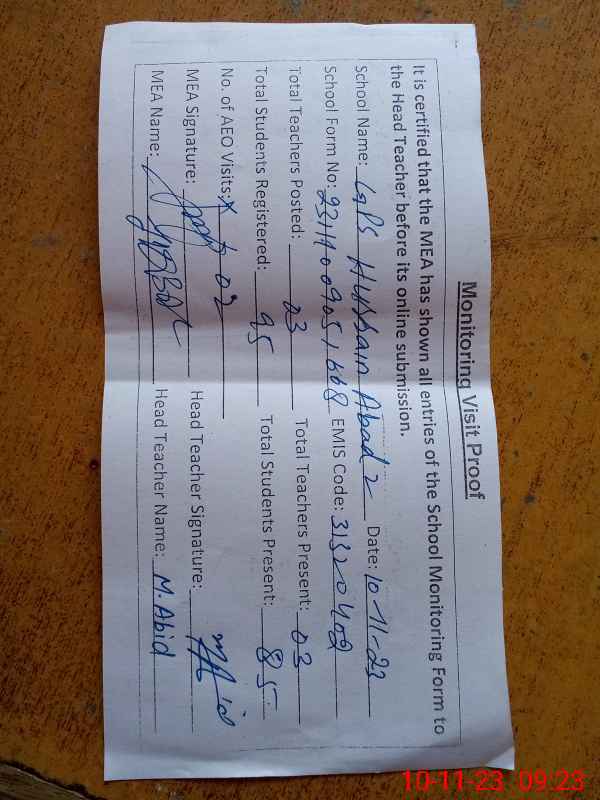 Monitoring Visit Proof
It is certified that the MEA has shown all entries of the School Monitoring Form to
the Head Teacher before its online submission.
School Name: GPS Hussain Abad 2 Date: 10-11-23
School Form No: EMIS Code: 31320402
Total Teachers Posted: 03 Total Teachers Present: 03
Total Students Registered: 95 Total Students Present: 85
No. of AEO Visits: 02
MEA Signature: Head Teacher Signature:
MEA Name: Head Teacher Name: M. Abid
10-11-23 09:23